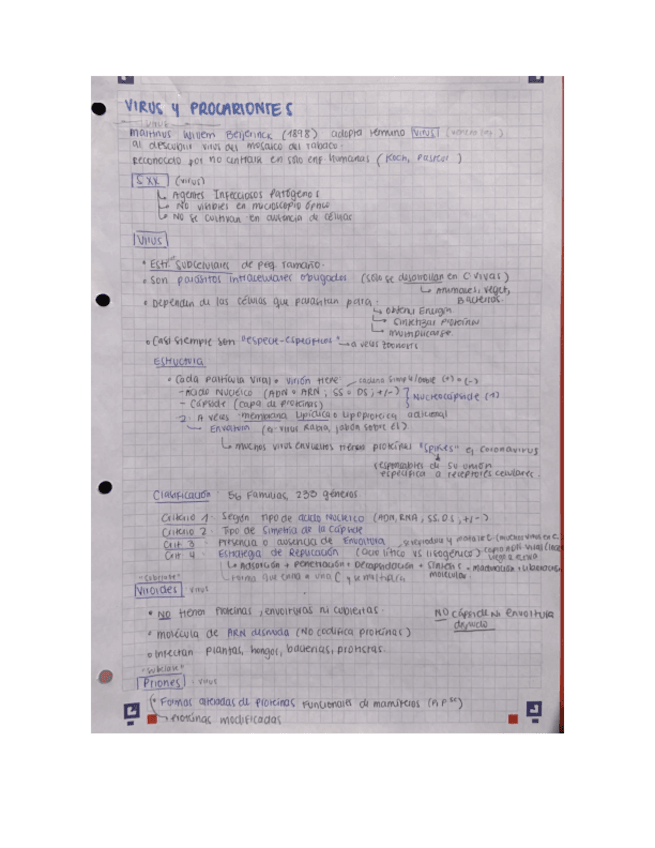 VIRUS Y PROCARIONTES
Martinus Willem Beijerinck (1898) adopta término VIRUS
al descubrir virus del mosaico del tabaco.
Reconocido por no centrarse en solo enf humanas (Koch, Pasteur)
S. XX (virus)
Agentes Infecciosos Patógenos
No visibles en microscopio óptico
No se cultivan en ausencia de células
VIRUS
• Estr. subcelulares de peq. tamaño.
• Son parásitos intracelulares obligados (solo se desarrollan en C vivas)
Animales, veget,
Bacterias.
• Dependen de las células que parasitan para:
obtener Energía
Sintetizar proteínas
multiplicarse.
• Casi siempre son "especie-específicos" a veces zoonosis
ESTRUCTURA
• Cada partícula viral o virión tiene cadena simple/doble (+) o (-)
- Ácido Nucleico (ADN o ARN, SS o DS, +/-) Nucleocápside (1)
- Cápside (capa de proteínas)
2. A veces membrana lipídica o lipoproteica adicional
Envoltura (ej virus Rabia, jabón sobre él)
muchos virus envueltos tienen proteínas "spikes" ej coronavirus
responsables de su unión
específica a receptores celulares.
Clasificación 56 Familias, 233 géneros
Criterio 1. Según tipo de ácido nucleico (ADN, RNA, SS. DS, +/-)
Criterio 2. Tipo de simetría de la cápside
Crit 3. Presencia o ausencia de Envoltura
Crit 4. Estrategia de Replicación (Ciclo lítico vs lisogénico)
Adsorción + penetración + Decapsidación + síntesis + maduración + liberación
molecular.
Forma que entra a una C y se multiplica
"subclase"
Viroides : virus
• NO tienen proteínas, envolturas ni cubiertas.
NO cápside Ni envoltura
desnudo
• molécula de ARN desnuda (No codifica proteínas)
• Infectan plantas, hongos, bacterias, protistas.
"subclase"
Priones : virus
• Formas alteradas de proteínas funcionales de mamíferos
proteínas modificadas